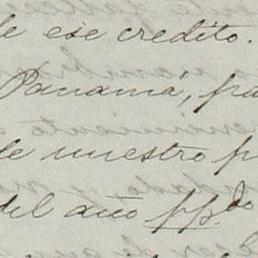 de ese credito.
Panamá, fra
de nuestro p
del año pp.do